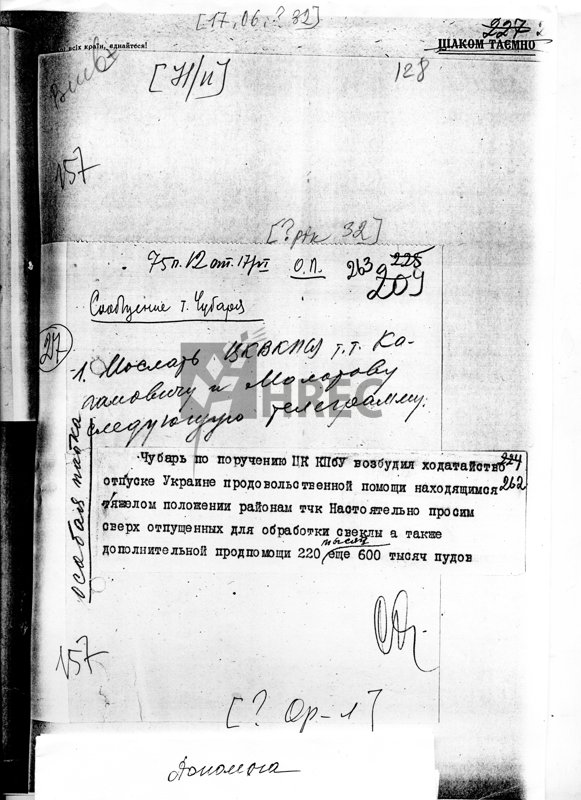 [17.06.? 32]
227
всіх країн, єднайтеся!
ЦІЛКОМ ТАЄМНО
[Н/п]
128
157
32]
75 п. 12 от. 17/VI О.П. 263
225
209
Сообщение т. Чубаря
27
1. Послать ЦКВКП т.т. Ка-
гановичу и Молотову
следующую телеграмму:
HREC
особая папка
Чубарь по поручению ЦК КПбУ возбудил ходатайство
224
отпуске Украине продовольственной помощи находящимся
262
тяжелом положении районам тчк Настоятельно просим
сверх отпущенных для обработки свеклы а также
дополнительной продпомощи 220 тысяч еще 600 тысяч пудов
157
[? Ор-л]
Допомога